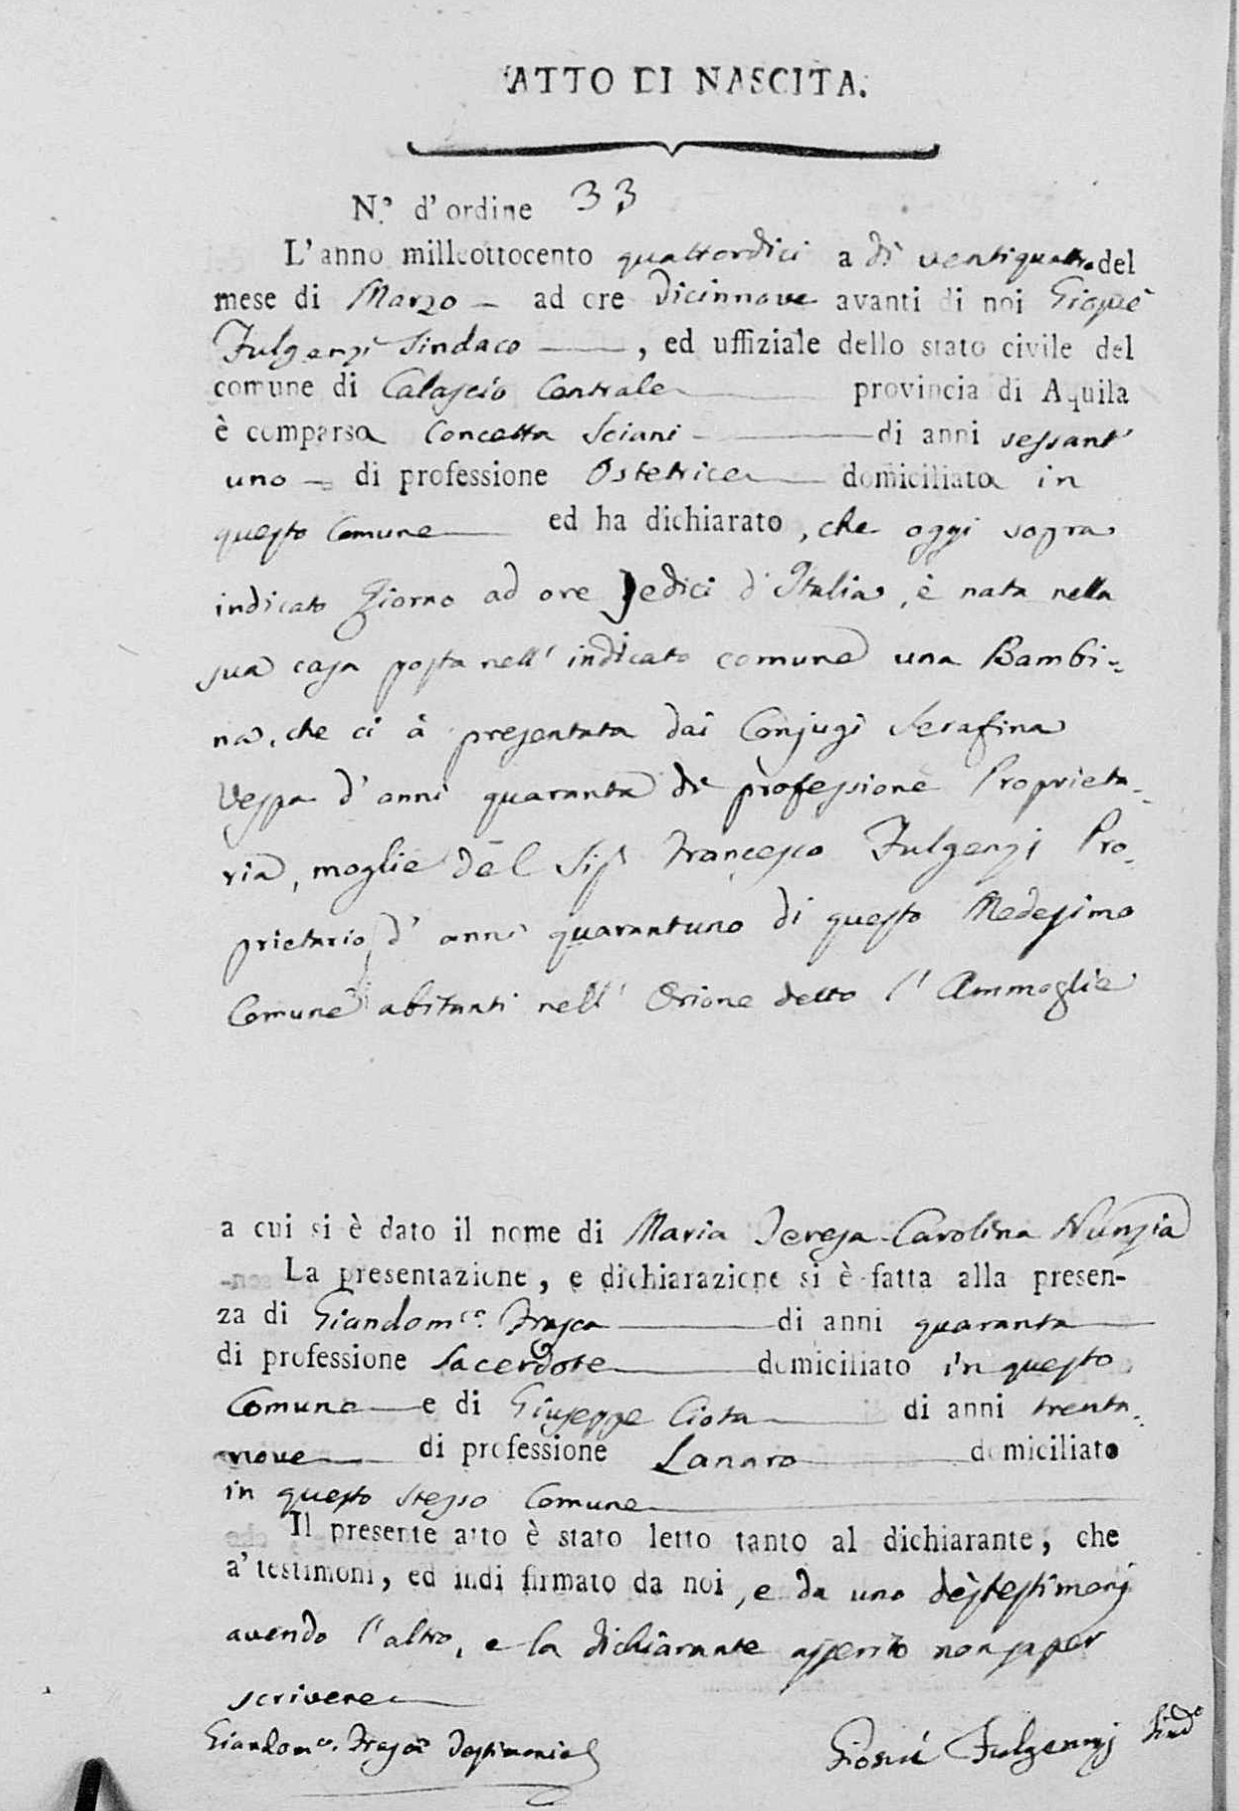 ATTO DI NASCITA.
N.º d'ordine 33
L'anno milleottocento quattordici a dì ventiquattro del
mese di Marzo ad ore dicinnove avanti di noi Giosuè
Fulgenzi Sindaco , ed uffiziale dello stato civile del
comune di Calascio Centrale provincia di Aquila
è comparsa Concetta Sciani di anni sessant'
uno di professione Ostetrice domiciliata in
questo Comune ed ha dichiarato, che oggi sopra
indicato Giorno ad ore sedici d'Italia, è nata nella
sua casa posta nell' indicato comune una Bambi-
na, che ci à presentata dai Conjugi Serafina
Vespa d'anni quaranta di professione Proprieta-
ria, moglie del Sigr Francesco Fulgenzi Pro-
prietario d' anni quarantuno di questo Medesimo
Comune abitanti nell' Orione detto l' Ammoglie
a cui si è dato il nome di Maria Teresa Carolina Nunzia
La presentazione, e dichiarazione si è fatta alla presen-
za di Giandom.co Frasca di anni quaranta
di professione Sacerdote domiciliato in questo
Comune e di Giuseppe Ciota di anni trenta-
nove di professione Lanaro domiciliato
in questo stesso Comune
Il presente atto è stato letto tanto al dichiarante, che
a' testimoni, ed indi firmato da noi, e da uno de' testimonj
avendo l'altro, e la dichiarante asserito non saper
scrivere
Giandom.co Frasca Testimonio
Giosuè Fulgenzj Sind.o